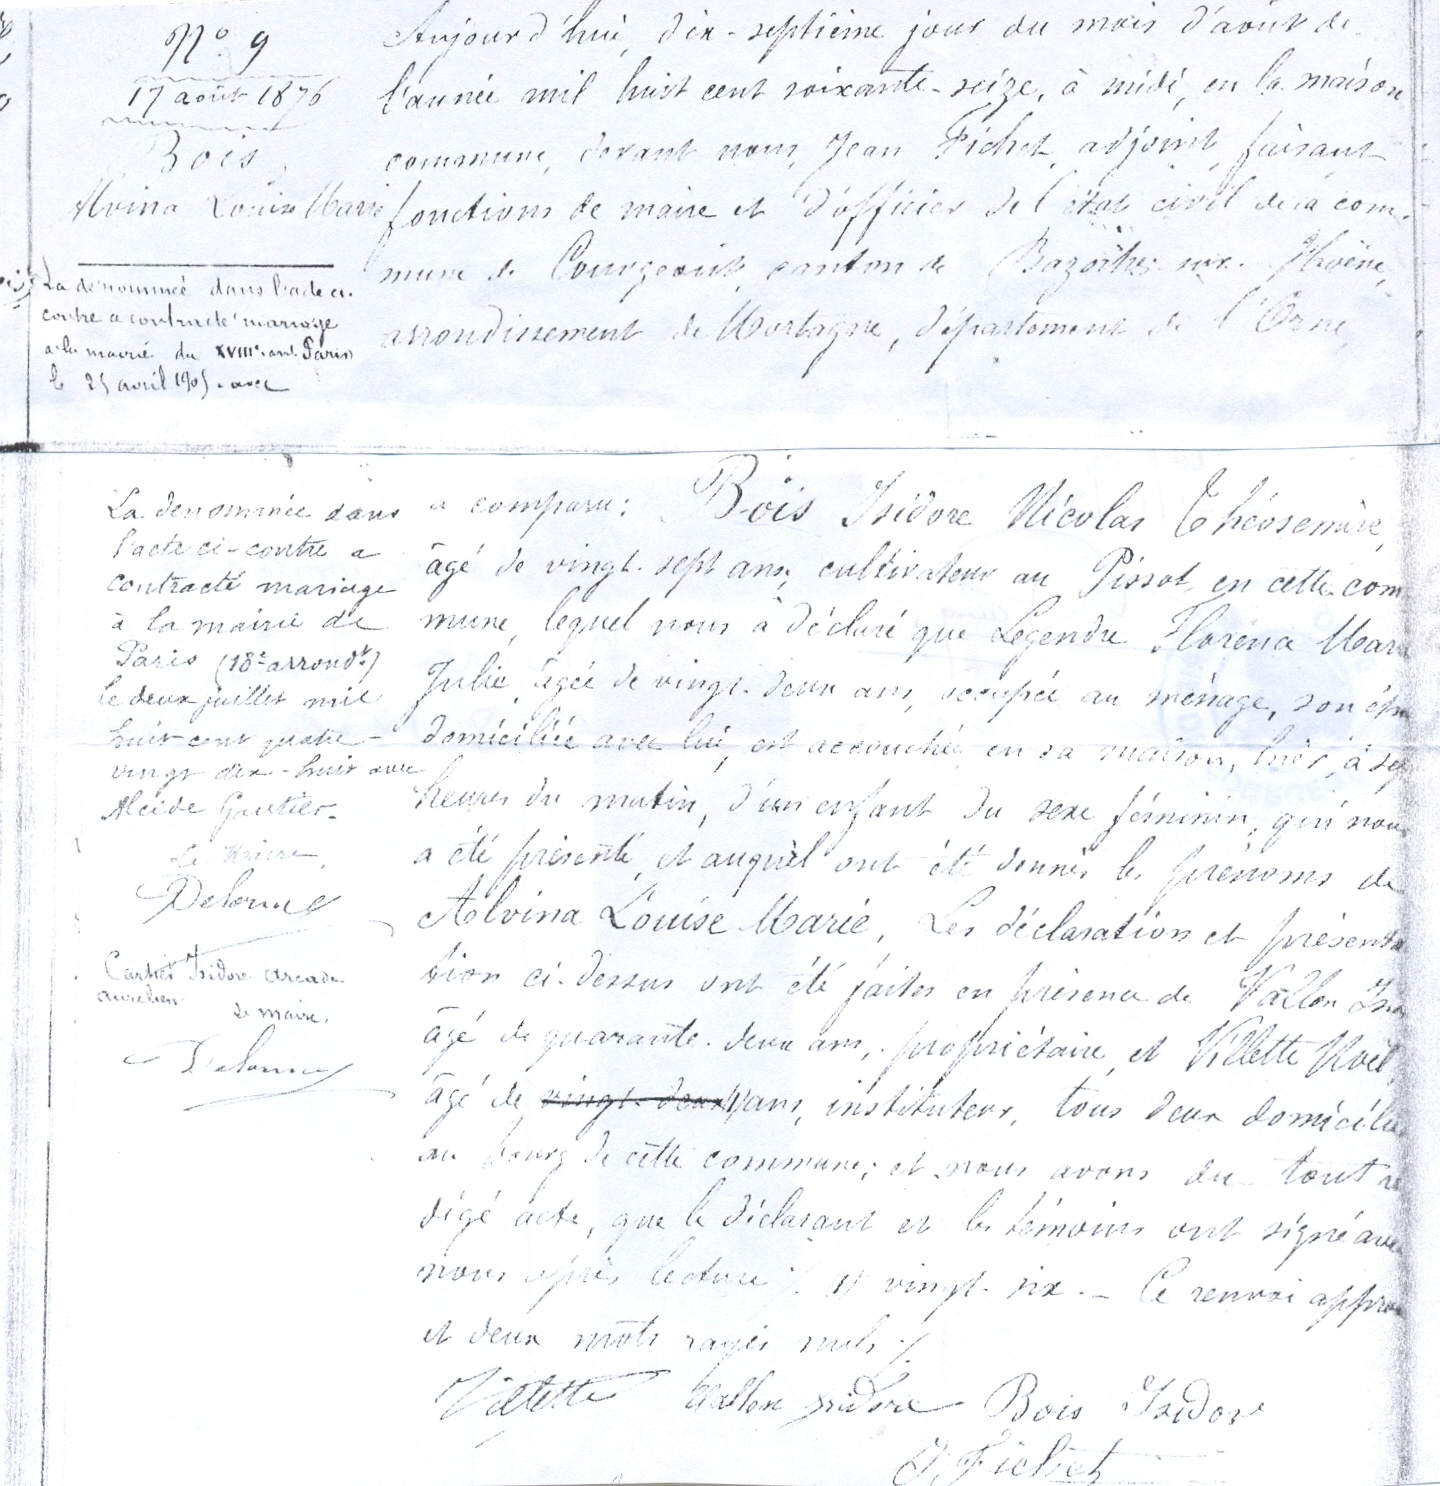 No 9
17 août 1876
Bois
Alvina Louise Marie
La dénommée dans l'acte ci-
contre a contracté mariage
à la mairie du XVIIIe arrt. Paris
le 25 avril 1905 avec
Aujourd'hui, dix-septième jour du mois d'août de
l'année mil huit cent soixante-seize, à midi, en la maison
commune, devant nous, Jean Fichet, adjoint, faisant
fonctions de maire et d'officier de l'état civil de la com-
mune de Courgeoût, canton de Bazoches-sur-Hoëne,
arrondissement de Mortagne, département de l'Orne,
La dénommée dans
l'acte ci-contre a
contracté mariage
à la mairie de
Paris (18e arrondt)
le deux juillet mil
huit cent quatre-
vingt dix-huit avec
Alcide Gautier.
Le Maire,
Delorme
Cartier Isidore Arcade
Aurélien
Le maire,
Delorme
a comparu: Bois Isidore Nicolas Théosemire,
âgé de vingt-sept ans, cultivateur au Pissot, en cette com
mune, lequel nous a déclaré que Legendre Florena Mari
Julie, âgée de vingt-deux ans, occupée au ménage, son ép
domiciliée avec lui, est accouchée, en sa maison, hier, à
heures du matin, d'un enfant du sexe féminin, qui nou
a été présenté, et auquel ont été donnés les prénoms de
Alvina Louise Marie, Les déclaration et présenta
tion ci-dessus ont été faites en présence de Vallon Isi
âgé de quarante-deux ans, propriétaire, et Villette Noël,
âgé de vingt-deux (1) ans, instituteur, tous deux domicilié
au bourg de cette commune; et nous avons du tout ré
digé acte, que le déclarant et les témoins ont signé avec
nous après lecture ./. (1) vingt-six. — Ce renvoi appro
et deux mots rayés nuls ./.
Villette Vallon Isidore Bois Isidor
J. Fichet